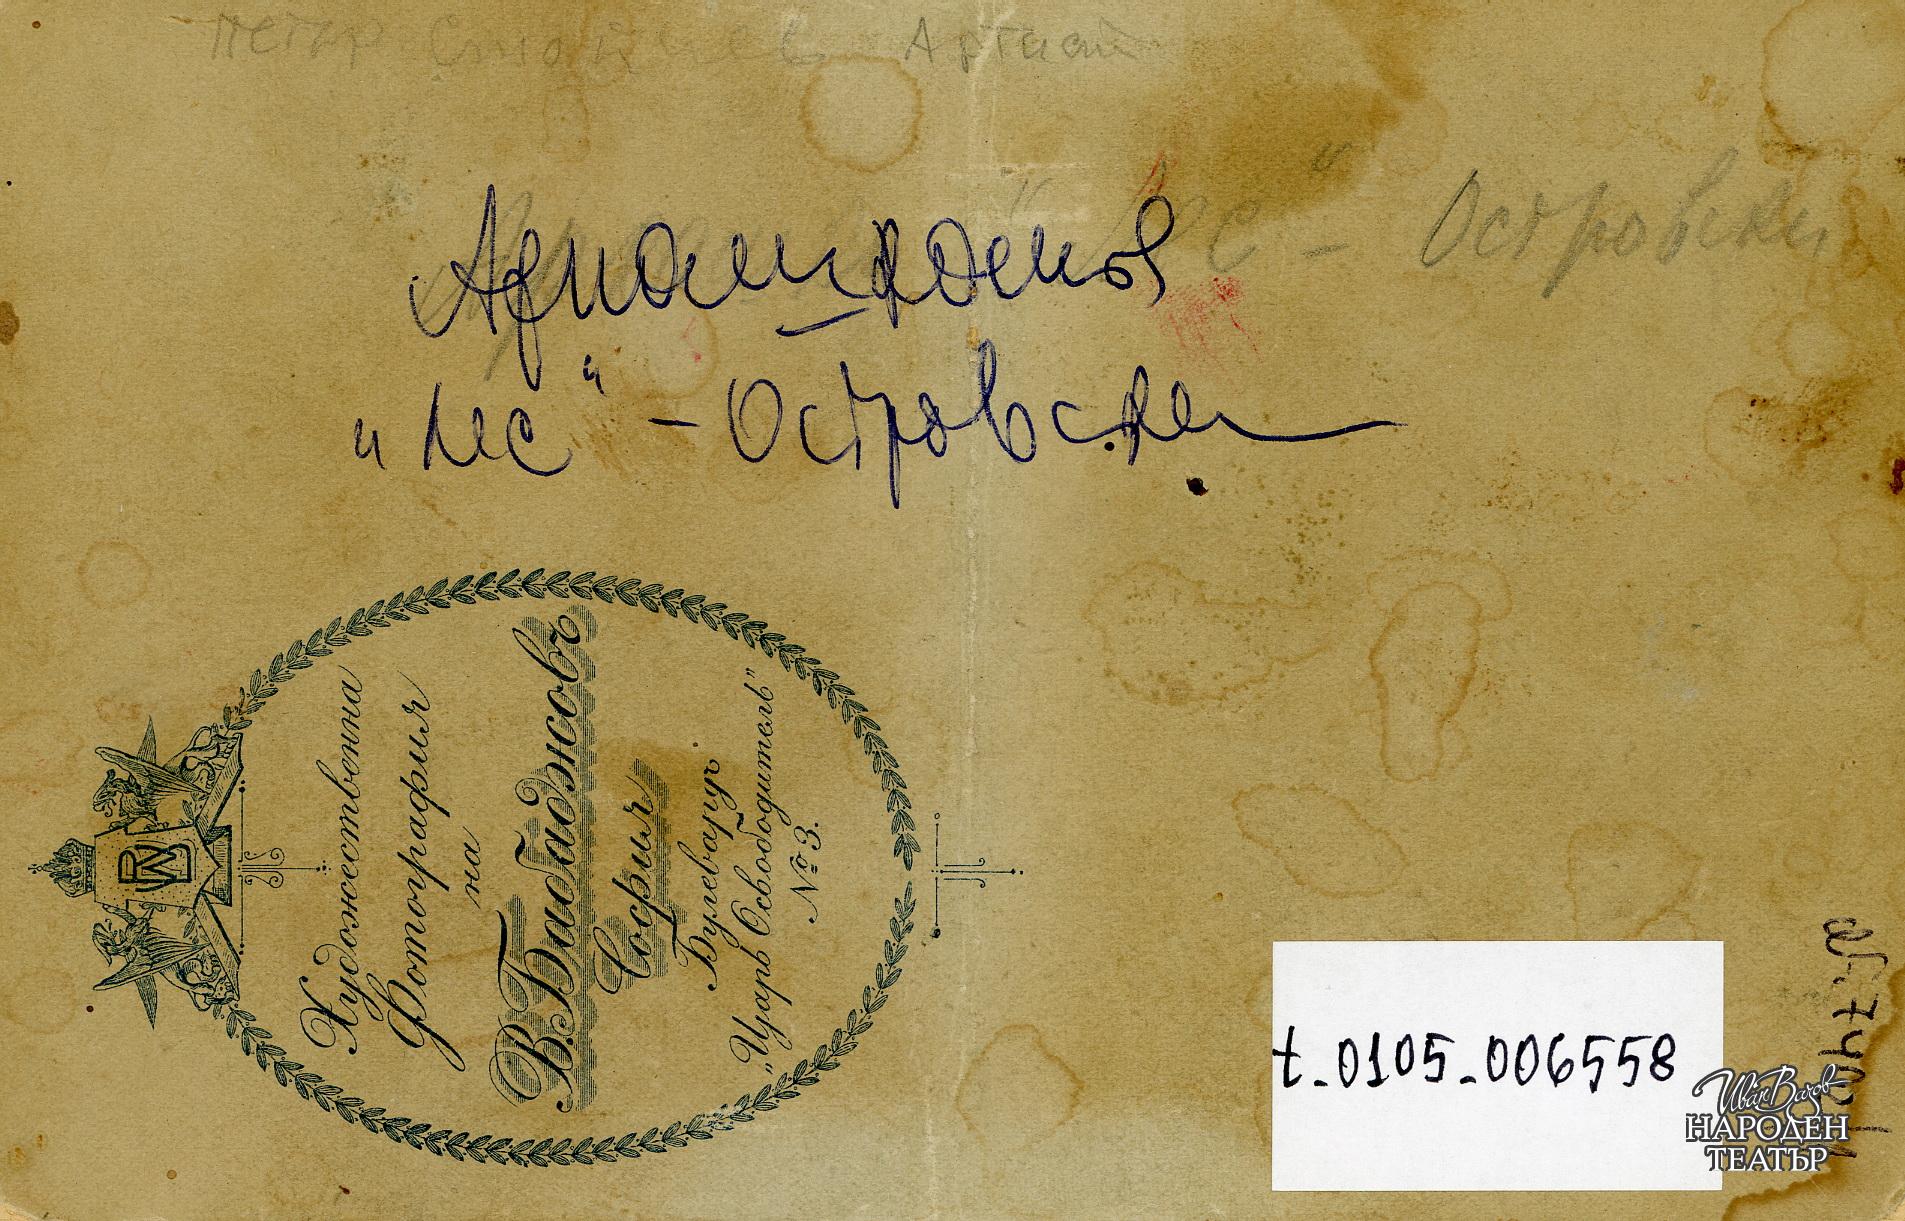 Петър Стойчев Артист
"Лес" - Островски
Аркашка
"Лес" - Островски
Художественна
Фотография
на
В. Бабаджовъ
София
Булеваръ
„Царь Освободитель"
№ 3.
t_0105_006558
Иван Вазов
НАРОДЕН
ТЕАТЪР